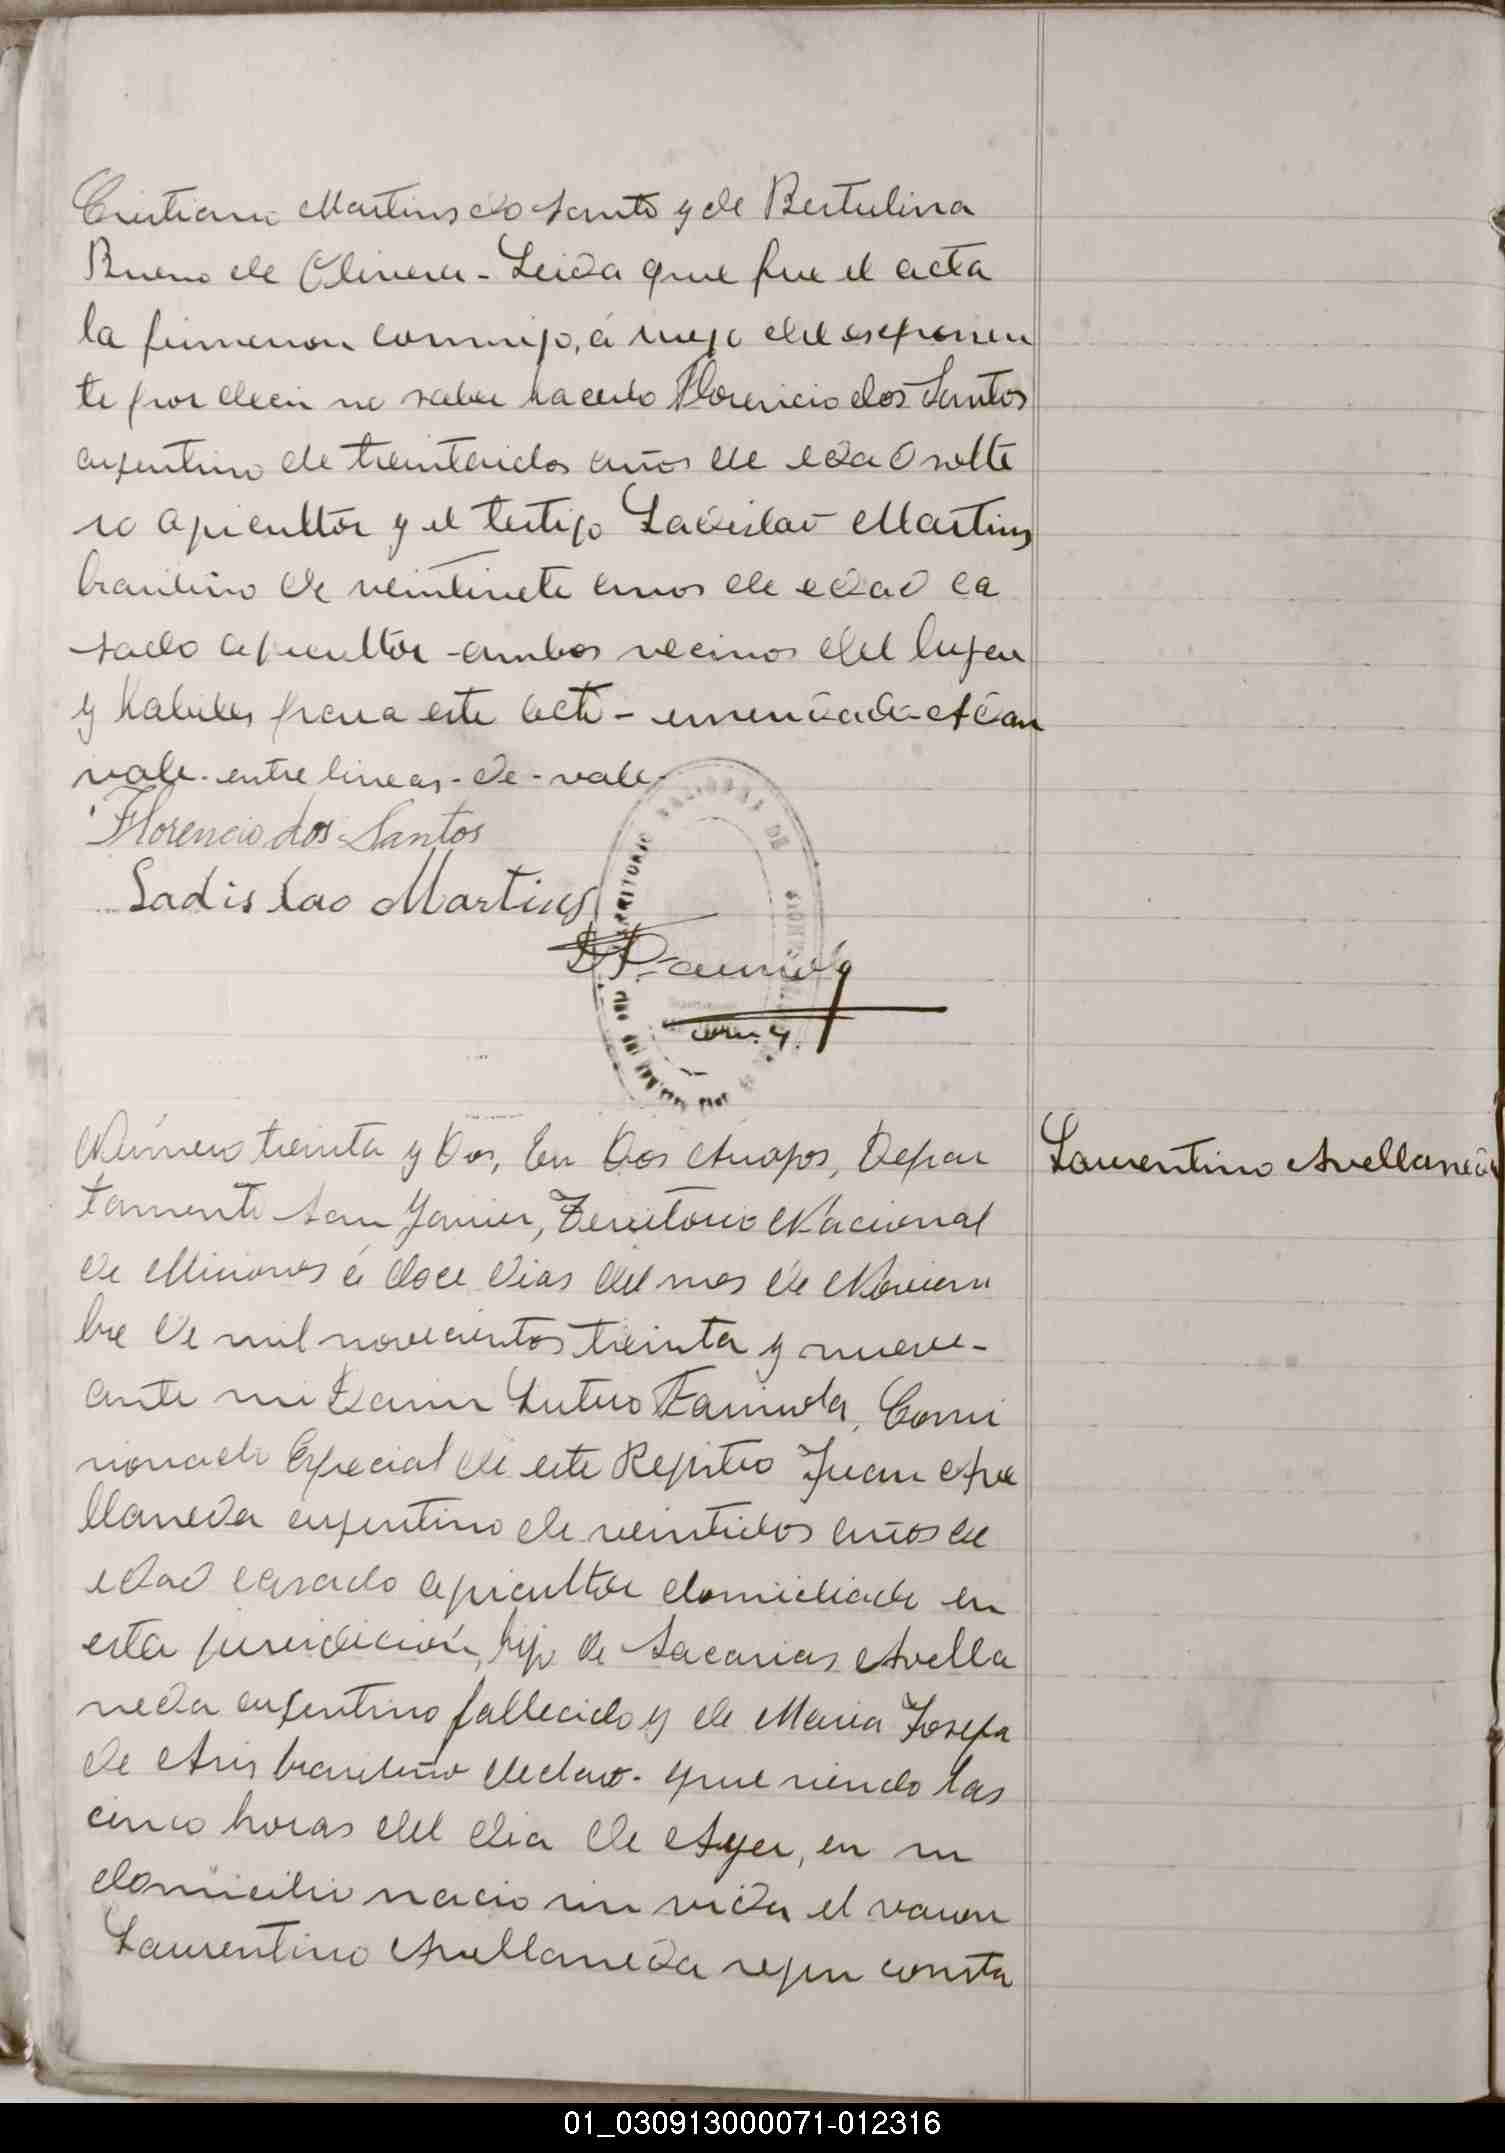 Cristiano Martins do Santo y de Bertulina
Bueno de Olivera - Leida que fue el acta
la firmaron conmigo, á ruego del esponen
te por decir no saber hacerlo Florencio dos Santos
argentino de treintaidos años de edad solte
ro agricultor y el testigo Ladislao Martins
brasileño de veintisiete años de edad ca
sado agricultor - ambos vecinos del lugar
y habiles para este acto - enmendado -
vale - entre lineas - de - vale -
Florencio dos Santos
Ladislao Martins
TERRITORIO NACIONAL DE MISIONES
Número treinta y Dos, En Dos Arroyos, Depar
tamento San Javier, Territorio Nacional
de Misiones á doce dias del mes de Noviem
bre de mil novecientos treinta y nueve -
ante mi Lutero Comi
sionado Especial de este Registro Juan Ave
llaneda argentino de veintidos años de
edad casado agricultor domiciliado en
esta jurisdicción, hijo de Sacarias Avella
neda argentino fallecido y de Maria Josefa
de brasileño declaro - que siendo las
cinco horas del dia de Ayer, en su
domicilio nacio sin vida el varon
Laurentino Avellaneda segun consta
Laurentino Avellaneda
01_030913000071-012316